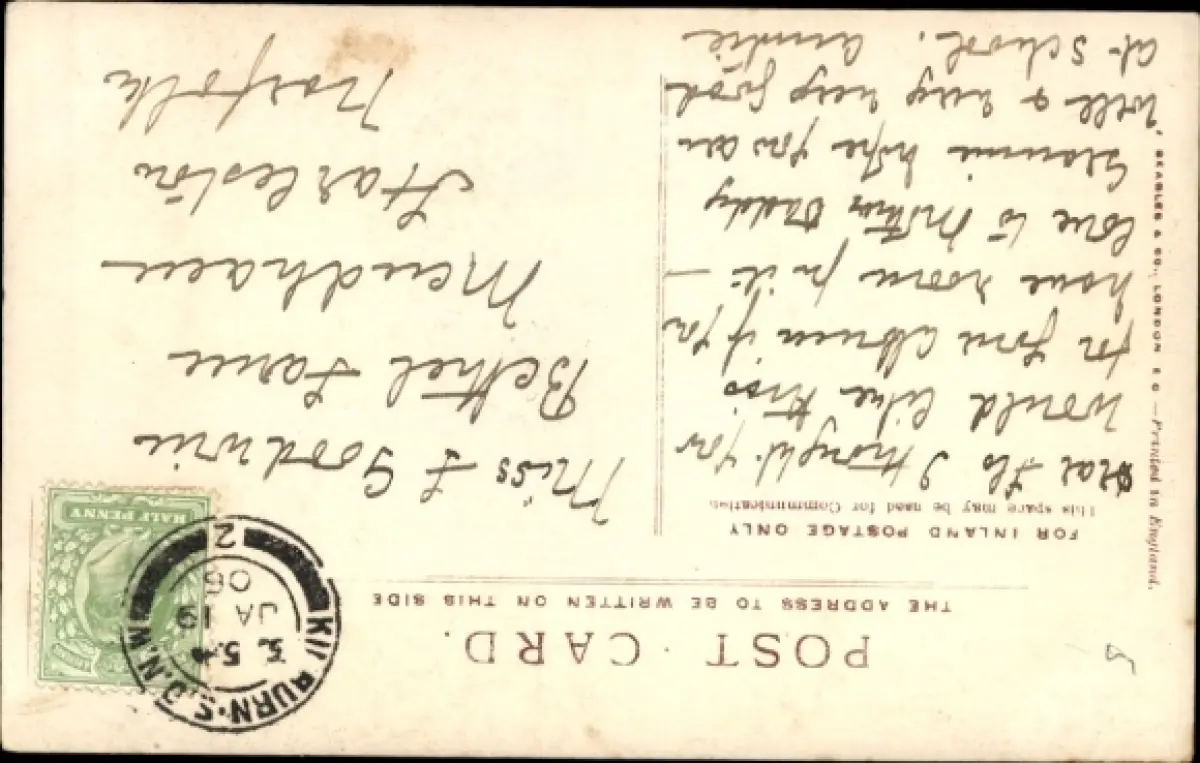 POST CARD.
THE ADDRESS TO BE WRITTEN ON THIS SIDE
FOR INLAND POSTAGE ONLY
This space may be used for Communication.
Dear Flo I thought you
would like this
for your album if you
have room for it —
love to Mother Daddy
Grannie hope you are
well & very very good
at School. Auntie
Miss F Goodwin
Bethel Farm
Mendham
Harleston
Norfolk
HALF PENNY
KILBURN·S.O.N.W
JA 19
06
2
BEAGLES & CO., LONDON E.C.—Printed in England.